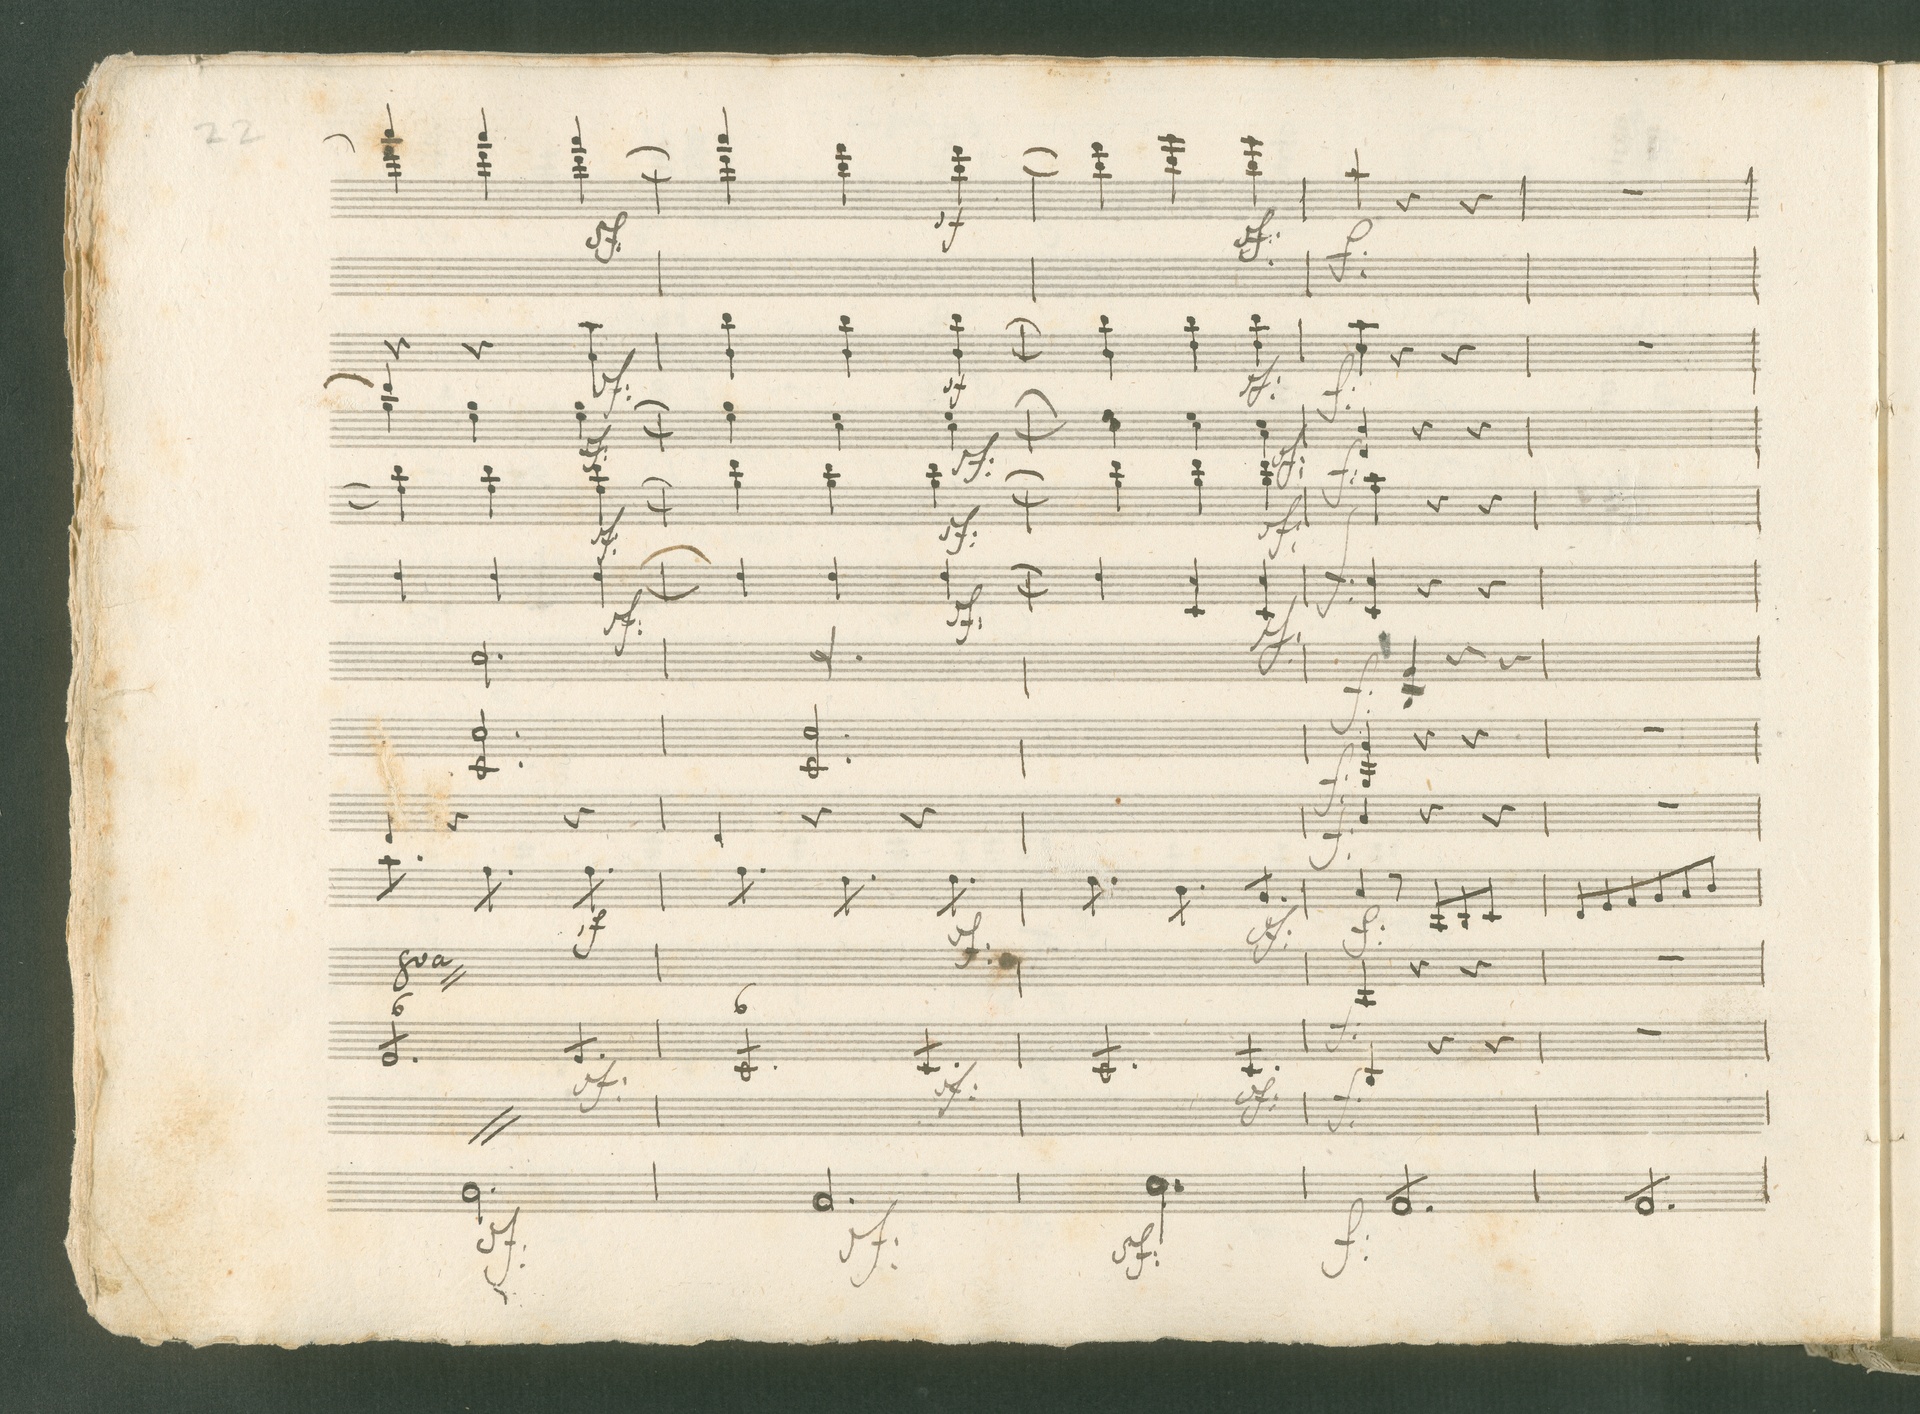 22
sf: sf sf: f:
sf: sf sf: f:
sf: sf: sf: f:
sf: sf: sf: f:
sf: sf: sf: f:
f:
f:
f:
sf sf: sf: f:
8va
6 6 f:
sf: sf: sf: f:
sf: sf: sf: f: